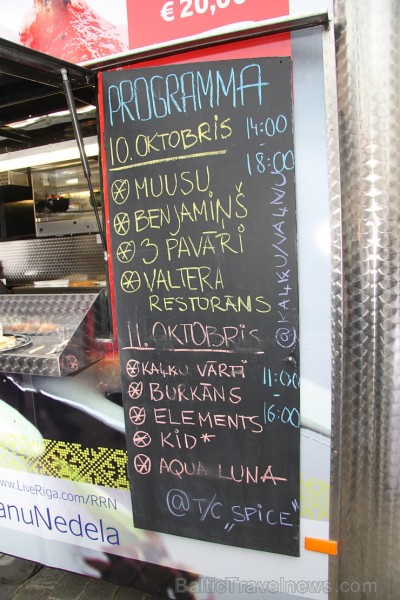 € 20,00
PROGRAMMA
10. OKTOBRIS 14:00 - 18:00
MUUSU
BENJAMIŅŠ
3 PAVĀRI
VALTERA
RESTORĀNS
@KAĻĶU/VAĻŅU
11. OKTOBRIS
KAĻĶU VĀRTI 11:00 - 16:00
BURKĀNS
ELEMENTS
KID*
AQUA LUNA
@T/C „SPICE"
www.LiveRiga.com/RRN
anuNedela
BalticTravelnews.com